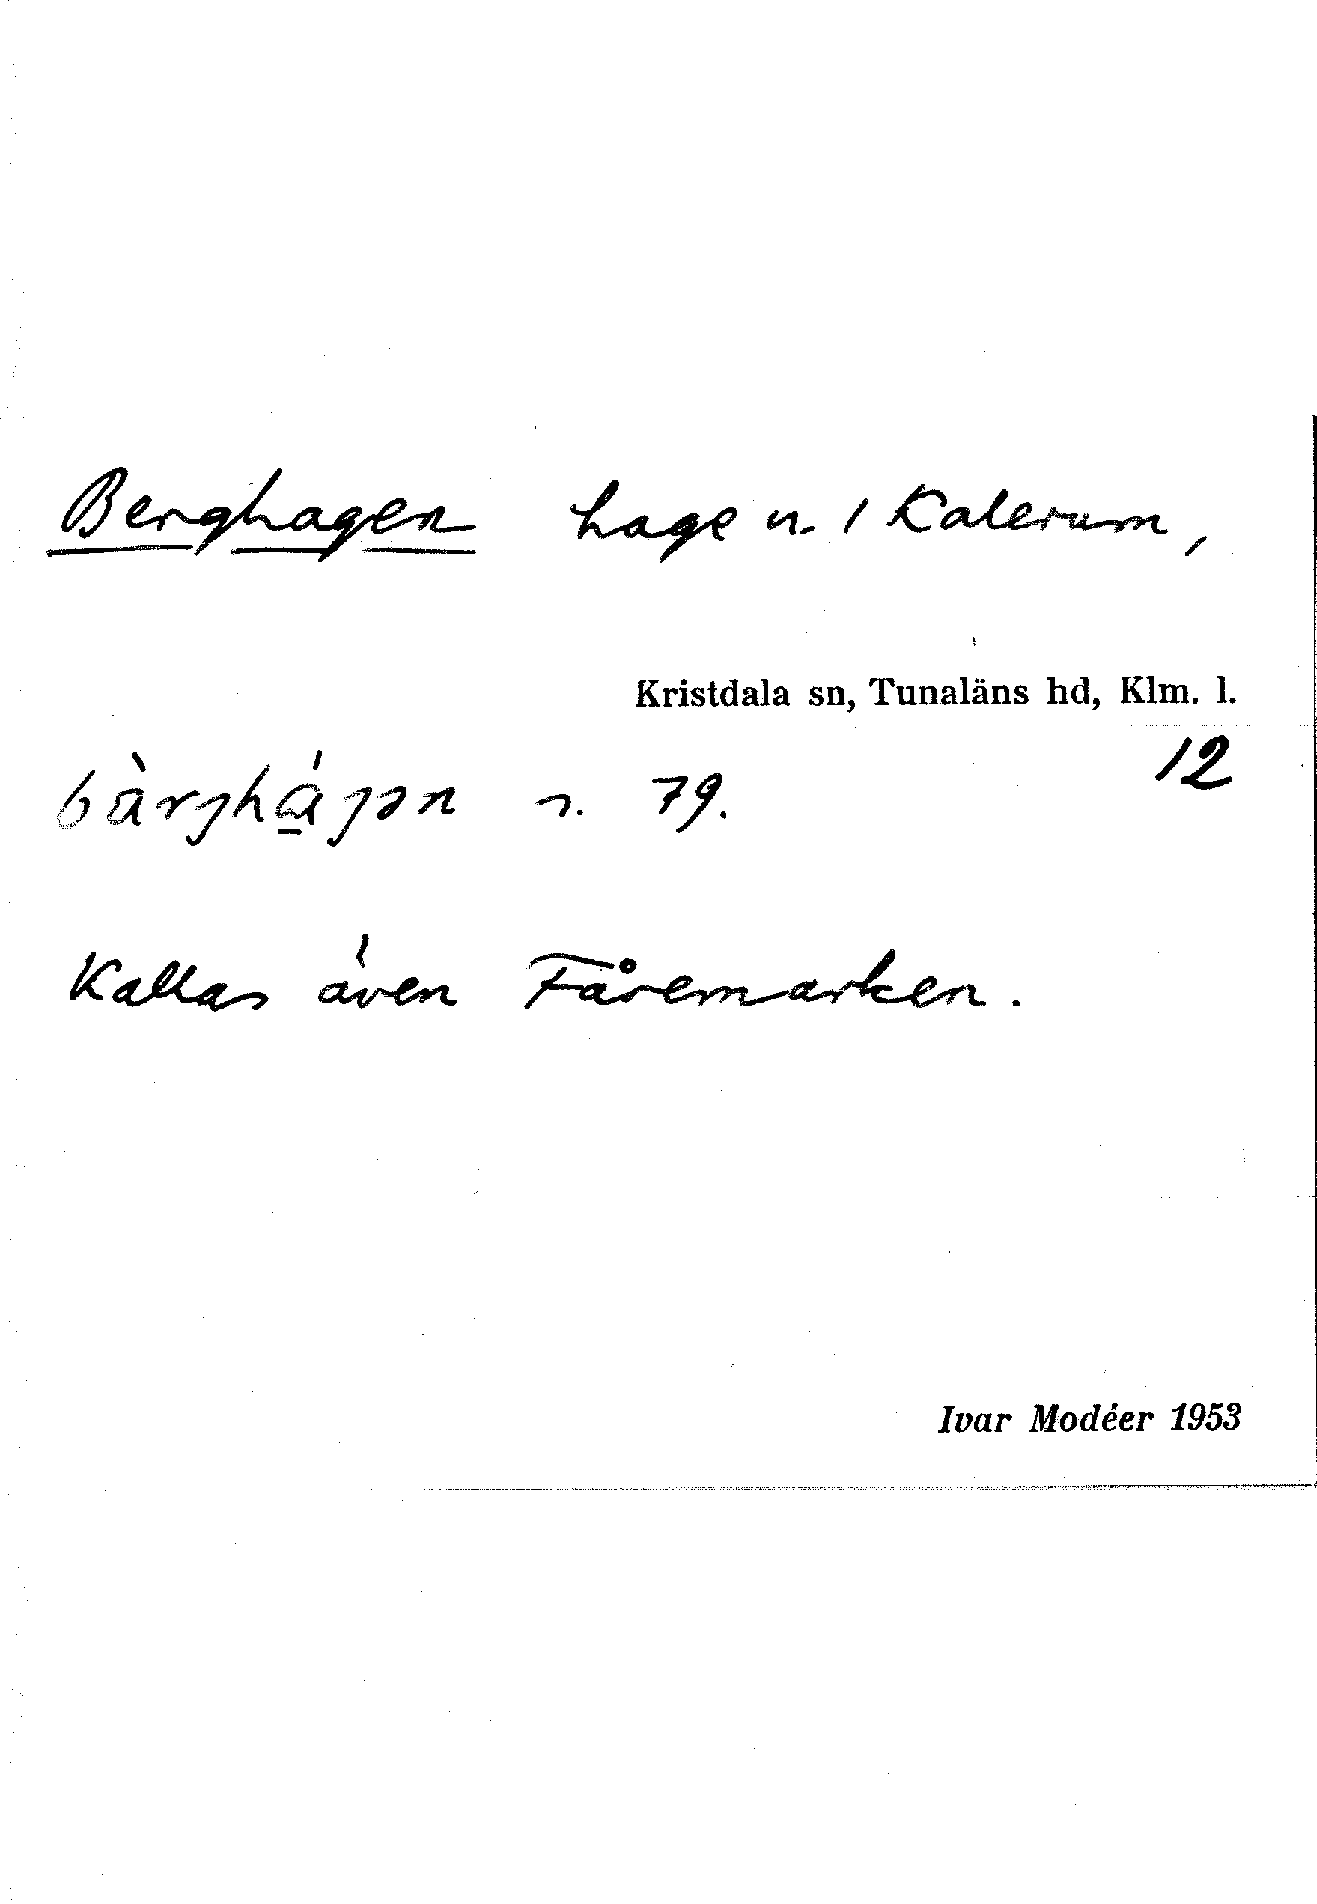 Berghagen hage u. / Kalerum,
Kristdala sn, Tunaläns hd, Klm. l.
12
79.
Kallas även Fåremarken.
Ivar Modéer 1953